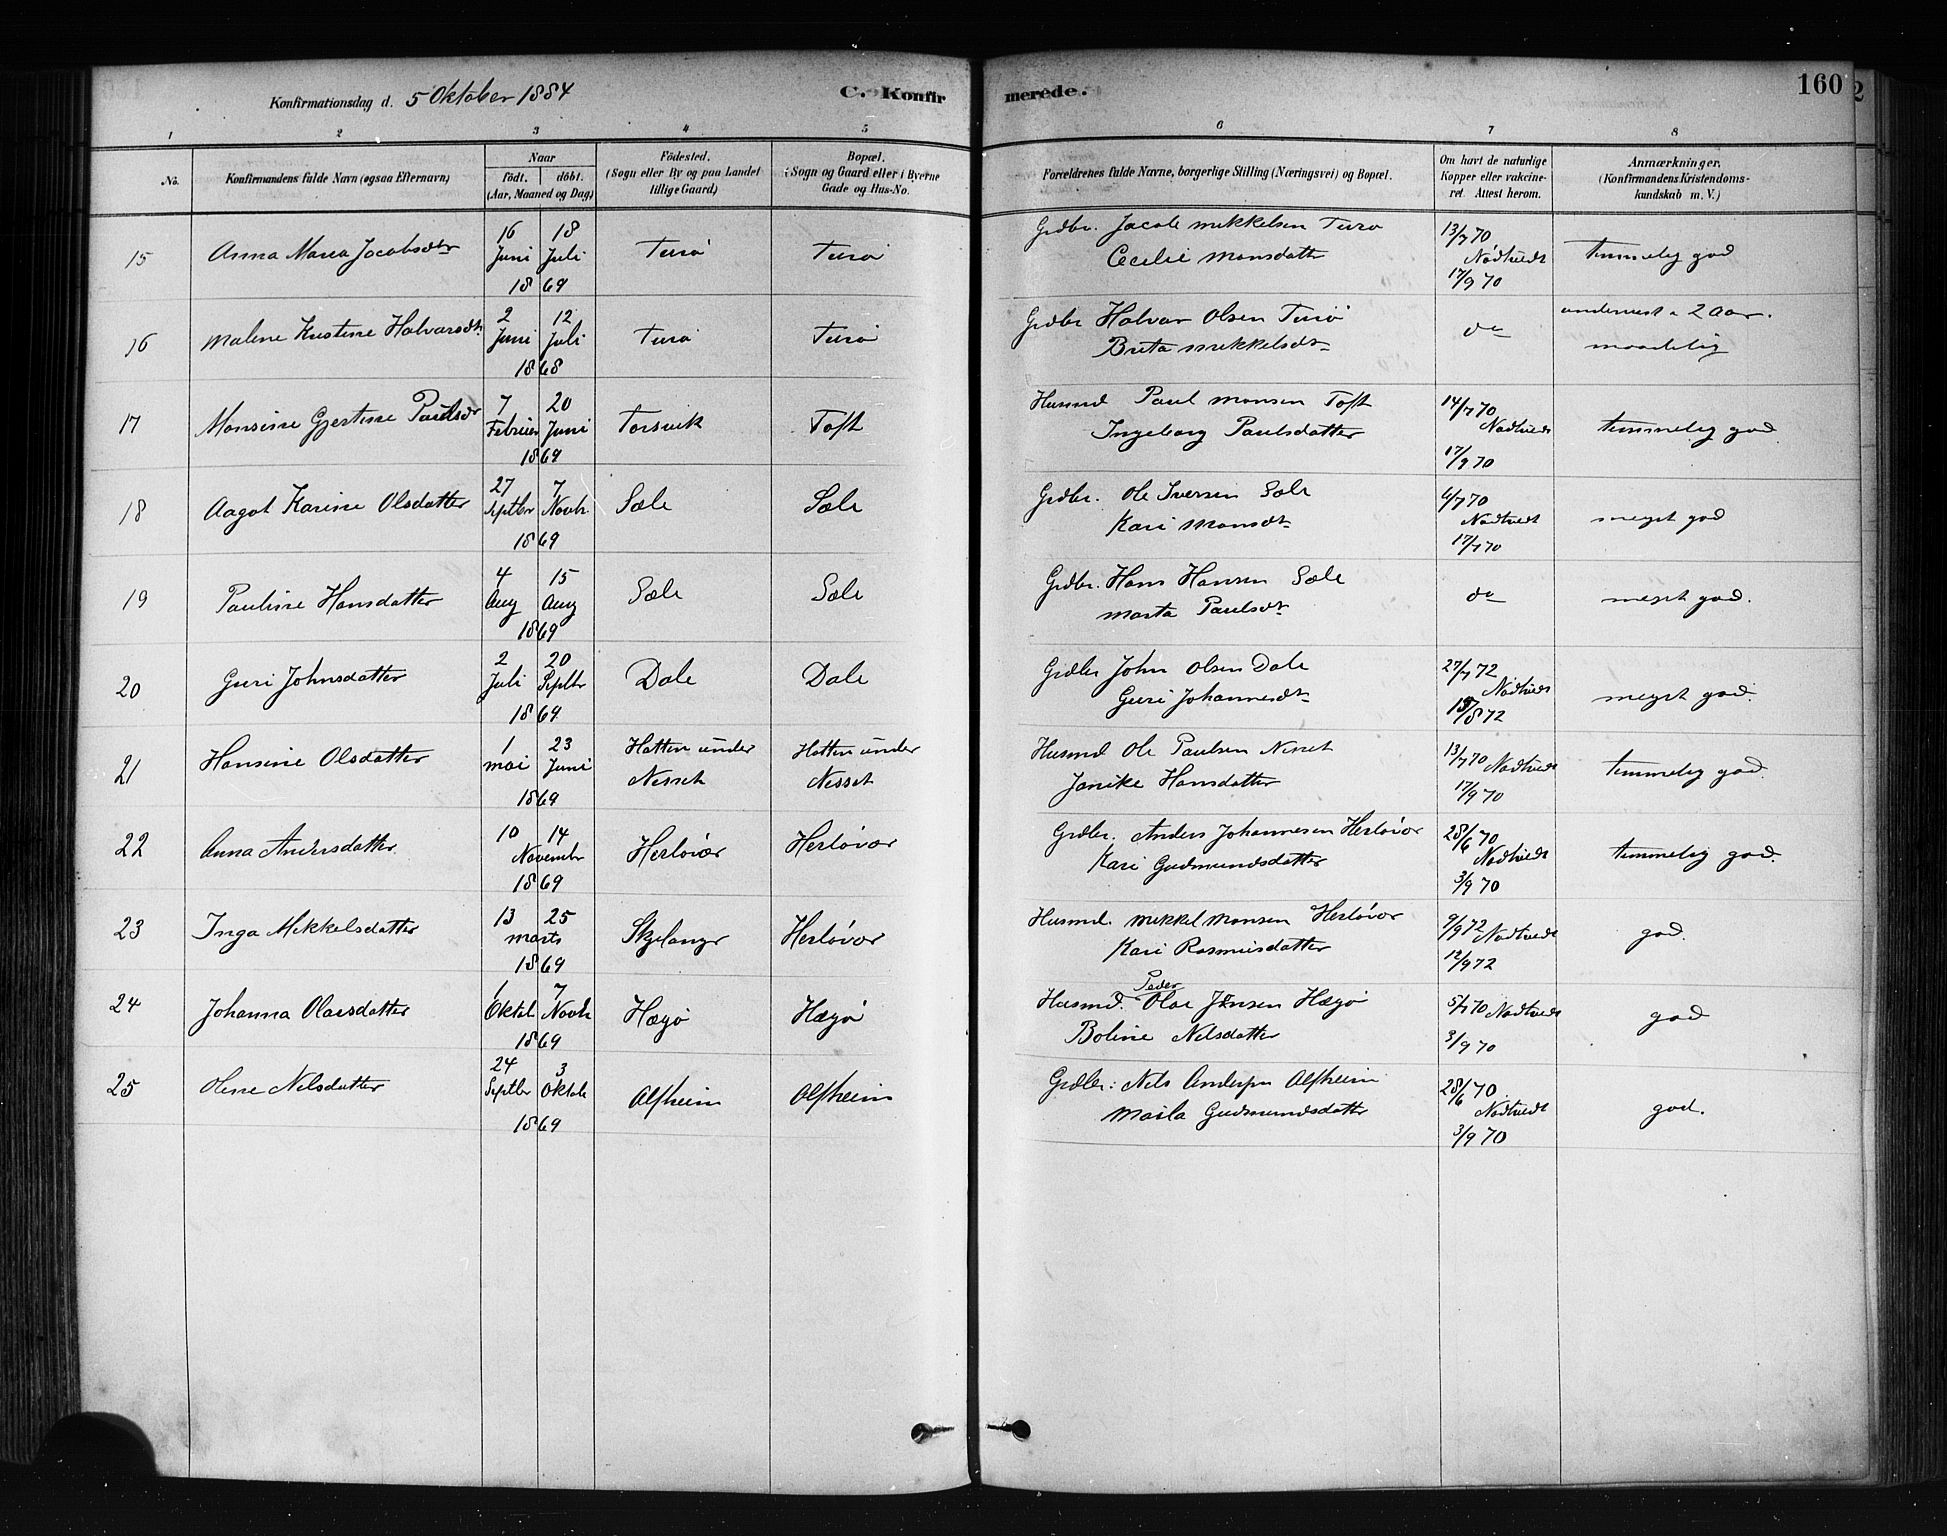 Konfirmationsdag d. 5 Oktober 1884
C. Konfir
merede.
160
1 2 3 4 5 6 7 8
No.
Konfirmandens fulde Navn (ogsaa Efternavn)
Naar
födt. döbt.
(Aar, Maaned og Dag)
Födested.
(Sogn eller By og paa Landet
tillige Gaard)
Bopæl.
(Sogn og Gaard eller i Byerne
Gade og Hus-No.
Forældrenes fulde Navne, borgerlige Stilling (Næringsvei) og Bopæl.
Om havt de naturlige
Kopper eller vakcine-
ret. Attest herom.
Anmærkninger.
(Konfirmandens Kristendoms-
kundskab m. V.)
15 Anna Maria Jacobsdtr 16 Juni 18 Juli 1869 Turø Turø
Grdbr. Jacob Mikkelsen Turø
Cecilie Monsdatter
13/7 70 Nødtvedt 17/9 70 temmelig god
16 Malene Kristine Halvarsdt. 2 Juni 12 Juli 1868 Turø Turø
Grdbr Halvar Olsen Turø
Brita Mikkelsdt
do 2 Aar. maadelig
17 Monsine Gjertine Paulsdr 7 Februar 20 Juni 1869 Torsvik Toft
Husmd Paul Monsen Toft
Ingeborg Paulsdatter
14/7 70 Nødtvedt 17/9 70 temmelig god
18 Aagot Karine Olsdatter 27 Septbr 7 Novbr 1869 Sæle Sæle
Grdbr. Ole Iversen Sæle
Kari Monsdt
6/7 70 Nødtvedt 17/7 70 meget god
19 Pauline Hansdatter 4 Aug 15 Aug 1869 Sæle Sæle
Grdbr. Hans Hansen Sæle
Marta Paulsdt
do meget god.
20 Guri Johnsdatter 2 Juli 20 Septbr 1869 Dale Dale
Grdbr John Olsen Dale
Guri Johannesdt
27/7 72 Nødtvedt 19/8 72 meget god.
21 Hansine Olsdatter 1 Mai 23 Juni 1869 Hatten under Nesset Hatten under Nesset
Husmd Ole Paulsen Nesset
Janike Hansdatter
13/7 70 Nødtvedt 17/9 70 temmelig god.
22 Anna Andersdatter. 10 14 Novembr 1869 Herløvær Herløvær
Grdbr. Anders Johannesen Herløvær
Kari Gudmundsdatter
28/6 70 Nødtvedt 3/9 70 temmelig god.
23 Inga Mikkelsdatter 13 25 Marts 1869 Skjelanger Herløvær
Husmd. Mikkel Monsen Herløvær
Kari Rasmusdatter
9/9 72 Nødtvedt 12/9 72 god.
24 Johanna Olaesdatter 1 Oktbr 7 Novbr 1869 Hægø Hægø
Peder
Husmd. Olae Jensen Hægø
Boline Nilsdatter
5/7 70 Nødtvedt 3/9 70 god
25 Olene Nilsdatter 24 Septbr 3 Oktob 1869 Alfheim Alfheim
Grdbr: Nils Andersen Alfheim
Marta Gudmundsdatter
28/6 70. Nødtvedt 3/9 70 god.